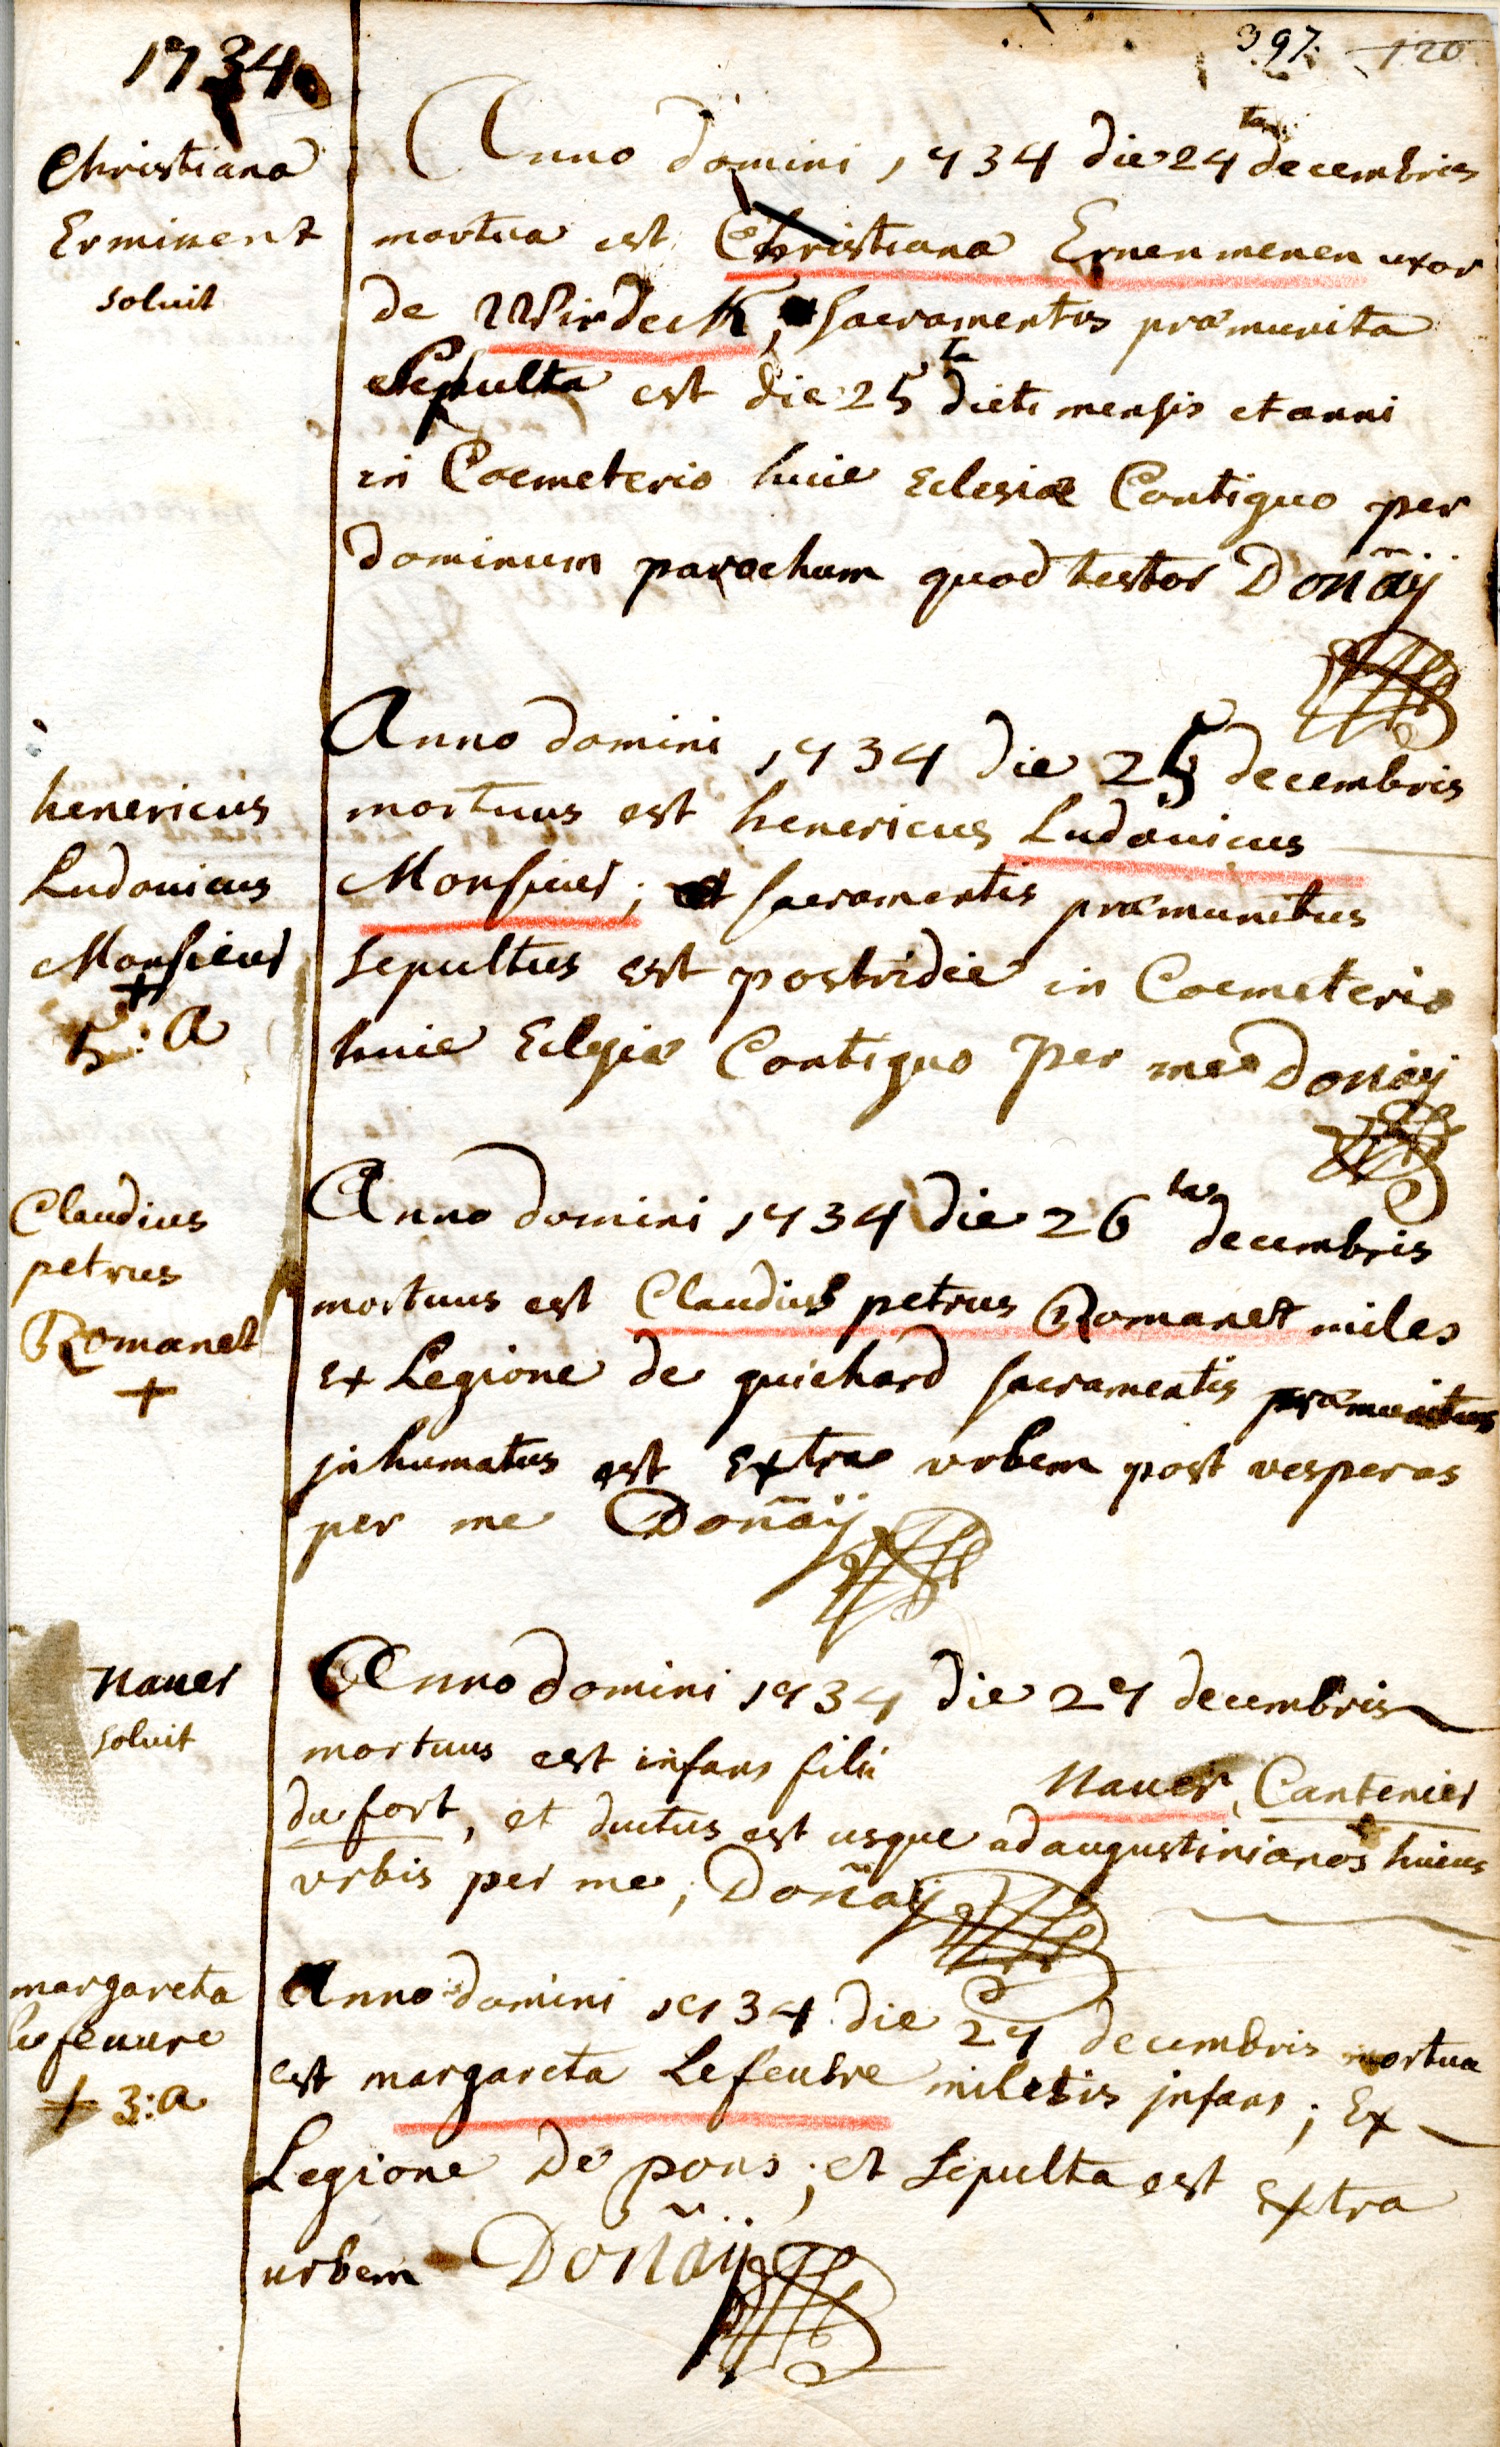 397. 120
1734
Christiana
Erminent
soluit
Anno domini 1734 die 24ta decembris
mortua est Christiana Ernenmenen uxor
de Wirdeck, sacramentis præmunita
sepulta est die 25ta dicti mensis et anni
in Coemeterio huic Eclesiæ Contiguo per
dominum parochum quod testor Donnaÿ
henericus
Ludouicus
Monsieur
+
5: a
Anno domini 1734 die 25 decembris
mortuus est henericus Ludouicus
Monsieur; et sacramentis præmunitus
sepultus est postridie in Coemeterio
huic Eclesiæ Contiguo per me Donaÿ
Claudius
petrus
Romanet
+
Anno domini 1734 die 26ta decembris
mortuus est Claudius petrus Romanet miles
ex Legione de guichard sacramentis præmunitus
inhumatus est extra urbem post vesperas
per me Doñaÿ
Nauer
soluit
Anno domini 1734 die 27 decembris
mortuus est infans filii Nauer, Cantenier
du fort, et ductus est usque ad augustinianos huius
vrbis per me, Doñaÿ
margareta
lefeuure
+ 3: a
Anno domini 1734 die 27 decembris mortua
est margareta Lefeubre militis jnfans; Ex
Legione De pons; et sepulta est extra
urbem Doñaÿ